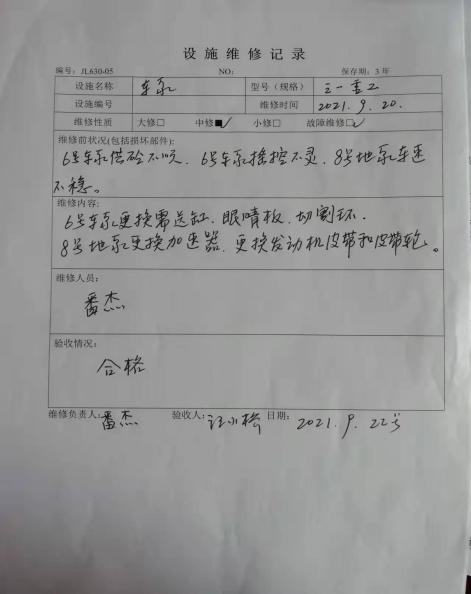 设施维修记录
编号：JL630-05 NO: 保存期：3 年
设施名称 车泵 型号（规格） 三一重工
设施编号 维修时间 2021.9.20.
维修性质 大修□ 中修■✓ 小修□ 故障维修□✓
维修前状况(包括损坏部件):
6号车泵借砼不吸．6号车泵摇控不灵．8号地泵车速
不稳。
维修内容:
6号车泵更换需送缸．眼睛板．切割环．
8号地泵更换加速器．更换发动机皮带和皮带轮。
维修人员:
番杰
验收情况:
合格
维修负责人: 番杰 验收人: 汪小松 日期: 2021.9.22号